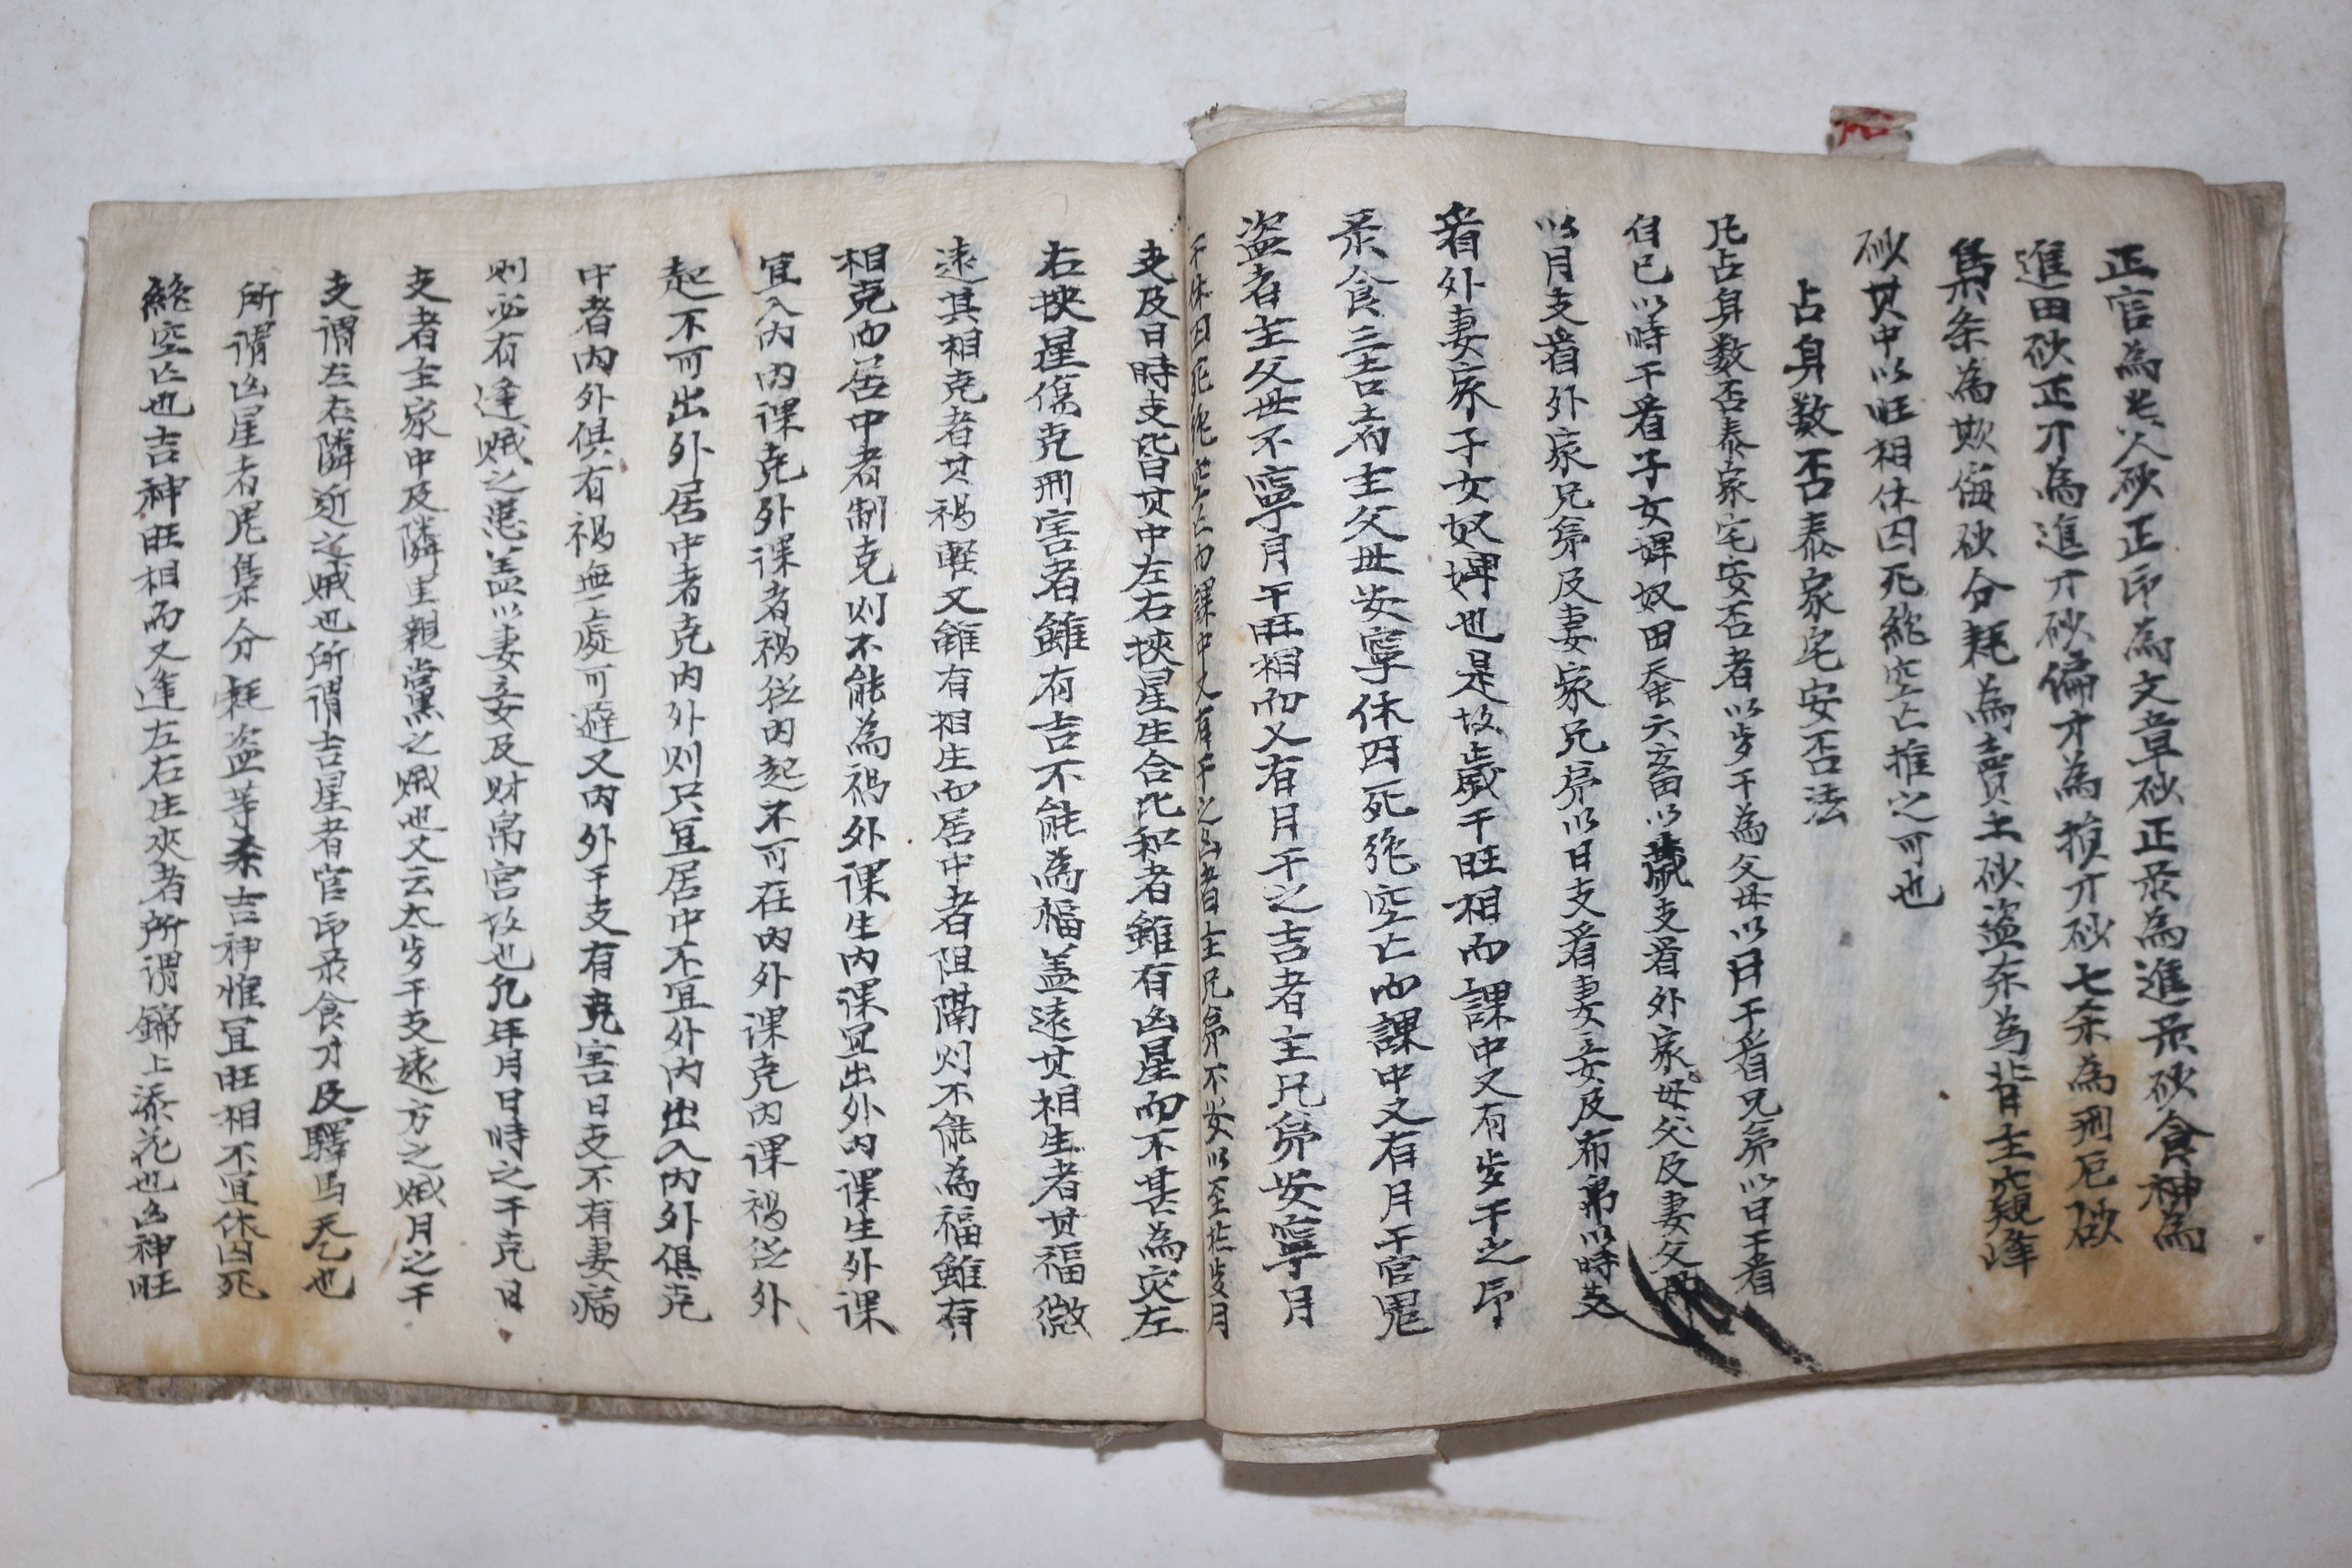 正官為貴人砂正印為文章砂正彔為進彔砂食神為
進田砂正才為進才砂偏才為損才砂七杀為刑厄砂
梟杀為欺侮砂分耗為賣土砂盜杀為背主六親峰
砂其中以旺相休囚死絶空亡推之可也
占身数否泰家宅安否法
凡占身数否泰家宅安否者以歩干為父母以月干看兄弟以日干看
自己以時干看子女婢奴田蚕六畜以歲支看外家母父及妻父母
以月支看外家兄弟及妻家兄弟以日支看妻妾及布帛以時支
看外妻家子女奴婢也是故歲干旺相而課中又有歩干之官印
彔食三吉者主父母安寧休囚死絶空亡而課中又有月干官鬼
盜者主父母不寧月干旺相而又有月干之吉者主兄弟安寧月
干休囚死絶空亡而課中又有干之凶者主兄弟不安以至於歩月
支及日時支皆其中左右挾星生合比和者雖有凶星而不甚為灾左
右挾星傷克刑害者雖有吉不能為福盖遠其相生者其福微
遠其相克者其禍軽又雖有相生而居中者阻隔則不能為福雖有
相克而居中者制克則不能為禍外課生内課冝出外内課生外課
冝入内内課克外課者禍從内起不可在内外課克内課禍從外
起不可出外居中者克内外則只冝居中不冝外内出入内外俱克
中者内外俱有禍無一處可避又内外干支有克害日支不有妻病
則必有逢賊之患盖以妻妾及財帛宮故也凡年月日時之干克日
支者主家中及隣里親黨之賊也又云太歩干支遠方之賊月之干
支謂左右隣近之賊也所謂吉星者官印彔食才及驛馬天乙也
所謂凶星者鬼梟分耗盜等杀吉神惟冝旺相不冝休囚死
絶空亡也吉神旺相而又逢左右生夾者所謂錦上添花也凶神旺